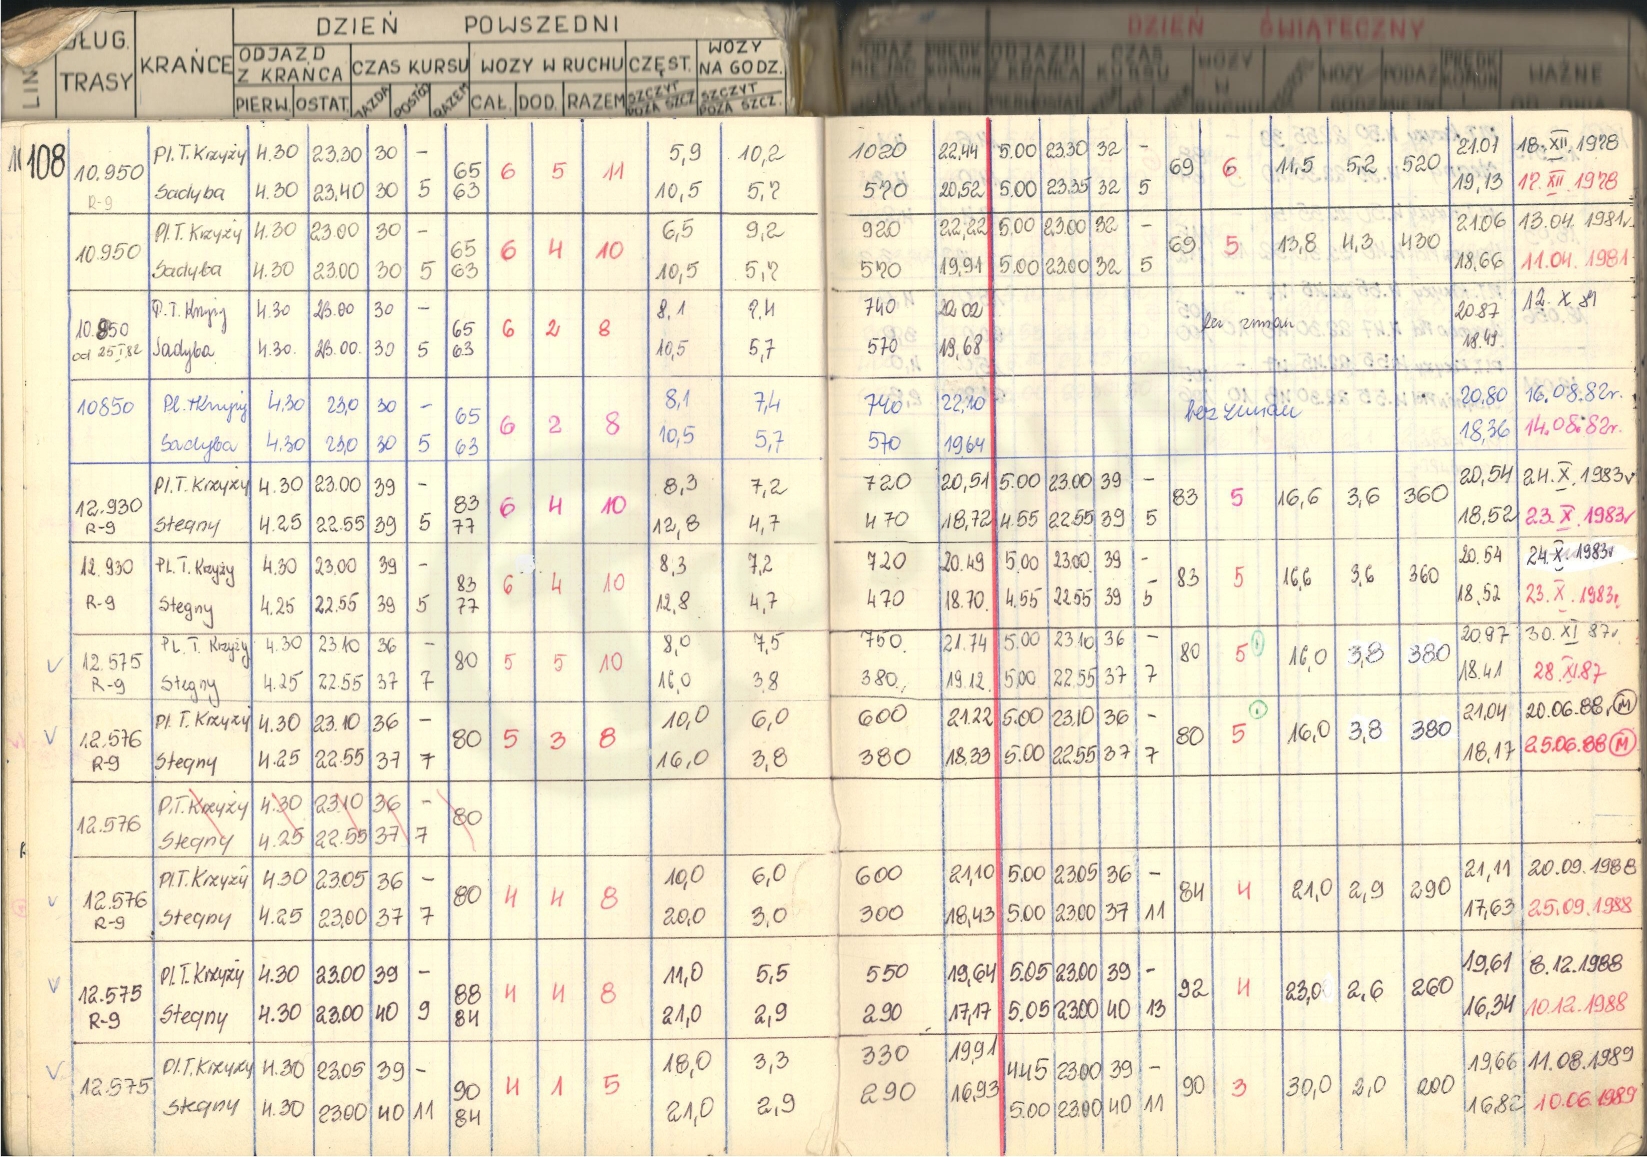 DZIEŃ POWSZEDNI DZIEŃ ŚWIĄTECZNY
DŁUG. TRASY KRAŃCE ODJAZD Z KRAŃCA CZAS KURSU WOZY W RUCHU CZĘST. WOZY NA GODZ.
PIERW. OSTAT. JAZDA POSTÓJ RAZEM CAŁ. DOD. RAZEM SZCZYT POZA SZCZ. SZCZYT POZA SZCZ.
LIN
WAŻNE OD DNIA
108 10.950 Pl.T.Krzyży 4.30 23.30 30 - 65 6 5 11 5,9 10,2 1020 22,44 5.00 23.30 32 - 69 6 11,5 5,2 520 21.07 18.XII.1978
R-9 Sadyba 4.30 23.40 30 5 63 10,5 5,7 570 20,52 5.00 23.35 32 5 19,13 17.XII.1978
10.950 Pl.T.Krzyży 4.30 23.00 30 - 65 6 4 10 6,5 9,2 920 22,22 5.00 23.00 32 - 69 5 13,8 4,3 430 21.06 13.04.1981r.
Sadyba 4.30 23.00 30 5 63 10,5 5,7 570 19,91 5.00 23.00 32 5 18,66 11.04.1981
10.850 P.T. Krzyży 4.30 23.00 30 - 65 6 2 8 8,1 7.4 740 22.02 bez zmian 20.87 12.X.81
od 25 I 82 Sadyba 4.30. 23.00. 30 5 63 10,5 5,7 570 19,68 18.49.
10850 Pl. T Krzyży 4.30 23,0 30 - 65 6 2 8 8,1 7,4 740 22,10 bez zmian 20,80 16.08.82r.
Sadyba 4.30 23,0 30 5 63 10,5 5,7 570 19,64 18,36 14.08.82r.
12.930 Pl.T.Krzyży 4.30 23.00 39 - 83 6 4 10 8,3 7,2 720 20,51 5.00 23.00 39 - 83 5 16,6 3,6 360 20,54 24.X.1983r
R-9 Stegny 4.25 22.55 39 5 77 12,8 4,7 470 18,72 4.55 22.55 39 5 18,52 23.X.1983r
12.930 PL.T. Krzyży 4.30 23.00 39 - 83 6 4 10 8,3 7,2 720 20.49 5.00 23.00 39 - 83 5 16,6 3,6 360 20.54 24.X.1983r
R-9 Stegny 4.25 22.55 39 5 77 12,8 4,7 470 18.70. 4.55 22.55 39 5 18,52 23.X.1983r
12.575 PL. T. Krzyży 4.30 23.10 36 - 80 5 5 10 8,0 7,5 750. 21.74 5.00 23.10 36 - 80 5 16,0 3,8 380 20.97 30.XI 87r.
R-9 Stegny 4.25 22.55 37 7 16,0 3,8 380. 19.12. 5.00 22.55 37 7 18.41 28.XI.87
12.576 Pl. T. Krzyży 4.30 23.10 36 - 80 5 3 8 10,0 6,0 600 21.22 5.00 23.10 36 - 80 5 16,0 3,8 380 21,04 20.06.88r M
R-9 Stegny 4.25 22.55 37 7 16,0 3,8 380 18.33 5.00 22.55 37 7 18,17 25.06.88 M
12.576 Pl.T.Krzyży 4.30 23.10 36 - 80
Stegny 4.25 22.55 37 7
12.576 Pl.T.Krzyży 4.30 23.05 36 - 80 4 4 8 10,0 6,0 600 21,10 5.00 23.05 36 - 84 4 21,0 2,9 290 21,11 20.09.1988
R-9 Stegny 4.25 23,00 37 7 20,0 3,0 300 18,43 5.00 23.00 37 11 17,63 25.09.1988
12.575 Pl.T.Krzyży 4.30 23.00 39 - 88 4 4 8 11,0 5,5 550 19,64 5.05 23.00 39 - 92 4 23,0 2,6 260 19,61 8.12.1988
R-9 Stegny 4.30 23.00 40 9 84 21,0 2,9 290 17,17 5.05 23.00 40 13 16,34 10.12.1988
12.575 Pl.T.Krzyży 4.30 23.05 39 - 90 4 1 5 18,0 3,3 330 19,91 4.45 23.00 39 - 90 3 30,0 2,0 200 19,66 11.08.1989
Stegny 4.30 23.00 40 11 84 21,0 2,9 290 16,93 5.00 23.00 40 11 16,82 10.06.1989